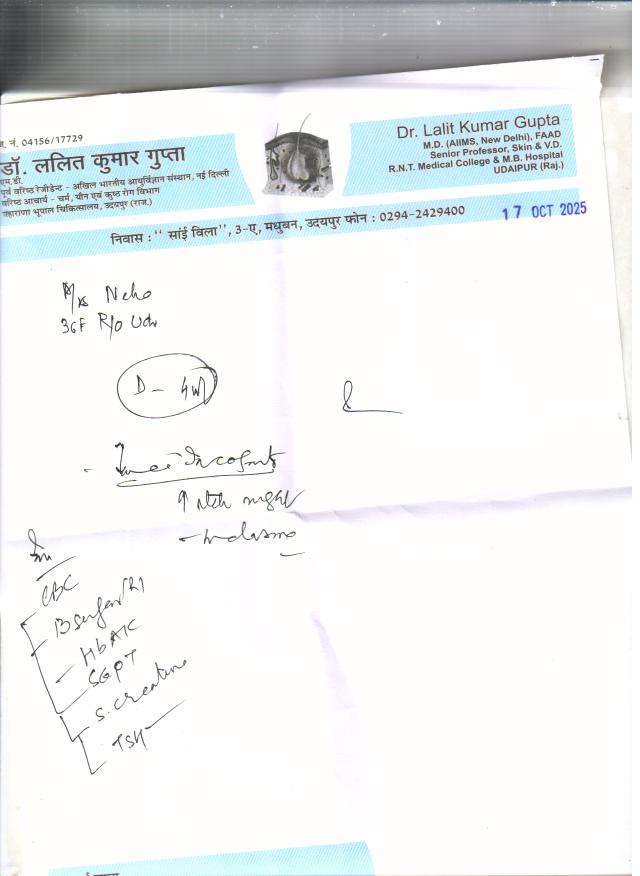 नं. 04156/17729
डॉ. ललित कुमार गुप्ता
एम.डी.
पूर्व वरिष्ठ रेजीडेन्ट - अखिल भारतीय आयुर्विज्ञान संस्थान, नई दिल्ली
वरिष्ठ आचार्य - चर्म, यौन एवं कुष्ठ रोग विभाग
महाराणा भूपाल चिकित्सालय, उदयपुर (राज.)
Dr. Lalit Kumar Gupta
M.D. (AIIMS, New Delhi), FAAD
Senior Professor, Skin & V.D.
R.N.T. Medical College & M.B. Hospital
UDAIPUR (Raj.)
निवास : '' सांई विला'', 3-ए, मधुबन, उदयपुर फोन : 0294-2429400
17 OCT 2025
Neha
36F R/O Udr
D -
Tinea Incognito
- melasma
CBC
B Sugar (R)
HbA1C
SGPT
S. Creatinine
TSH